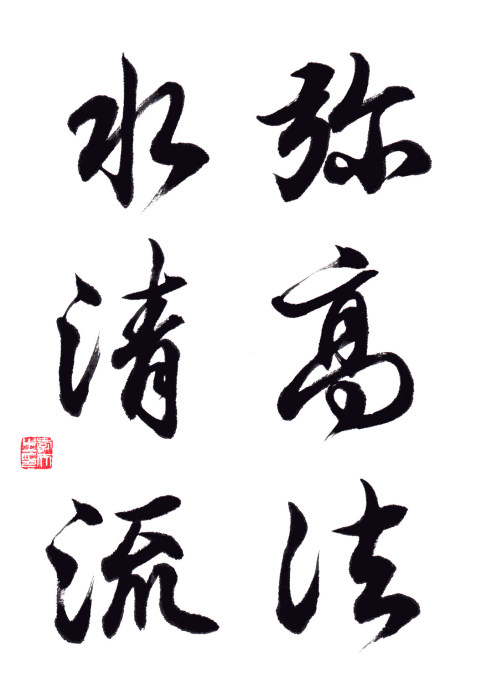 弥高法
水清流